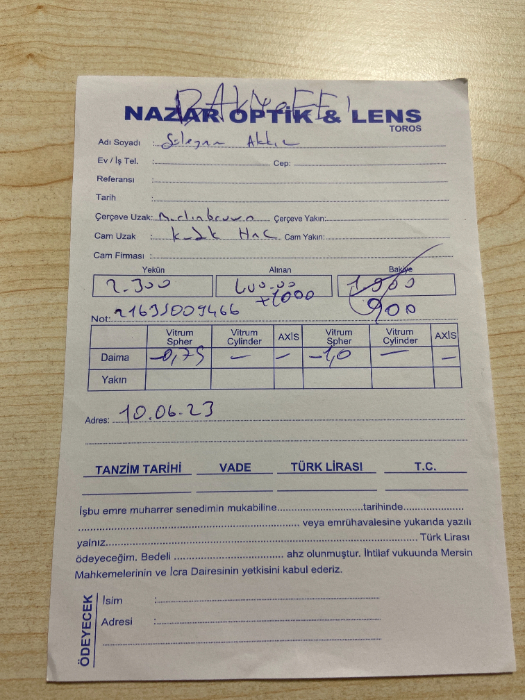 NAZAR OPTİK & LENS
TOROS
Adı Soyadı : Süleyman
Ev / İş Tel. : Cep:
Referansı :
Tarih :
Çerçeve Uzak: Çerçeve Yakın:
Cam Uzak : HMC Cam Yakın:
Cam Firması :
Yekün Alınan Bakiye
2.300 400.00 1.900
+1000 900
Not: 21631009466
Vitrum Spher Vitrum Cylinder AXİS Vitrum Spher Vitrum Cylinder AXİS
Daima -0,75 — — -1,0 — —
Yakın
Adres: 10.06.23
TANZİM TARİHİ VADE TÜRK LİRASI T.C.
İşbu emre muharrer senedimin mukabiline....................tarihinde..............
.................................................. veya emrühavalesine yukarıda yazılı
yalnız.................................................................. Türk Lirası
ödeyeceğim. Bedeli ......................... ahz olunmuştur, İhtilaf vukuunda Mersin
Mahkemelerinin ve İcra Dairesinin yetkisini kabul ederiz.
ÖDEYECEK
İsim :
Adresi :
: